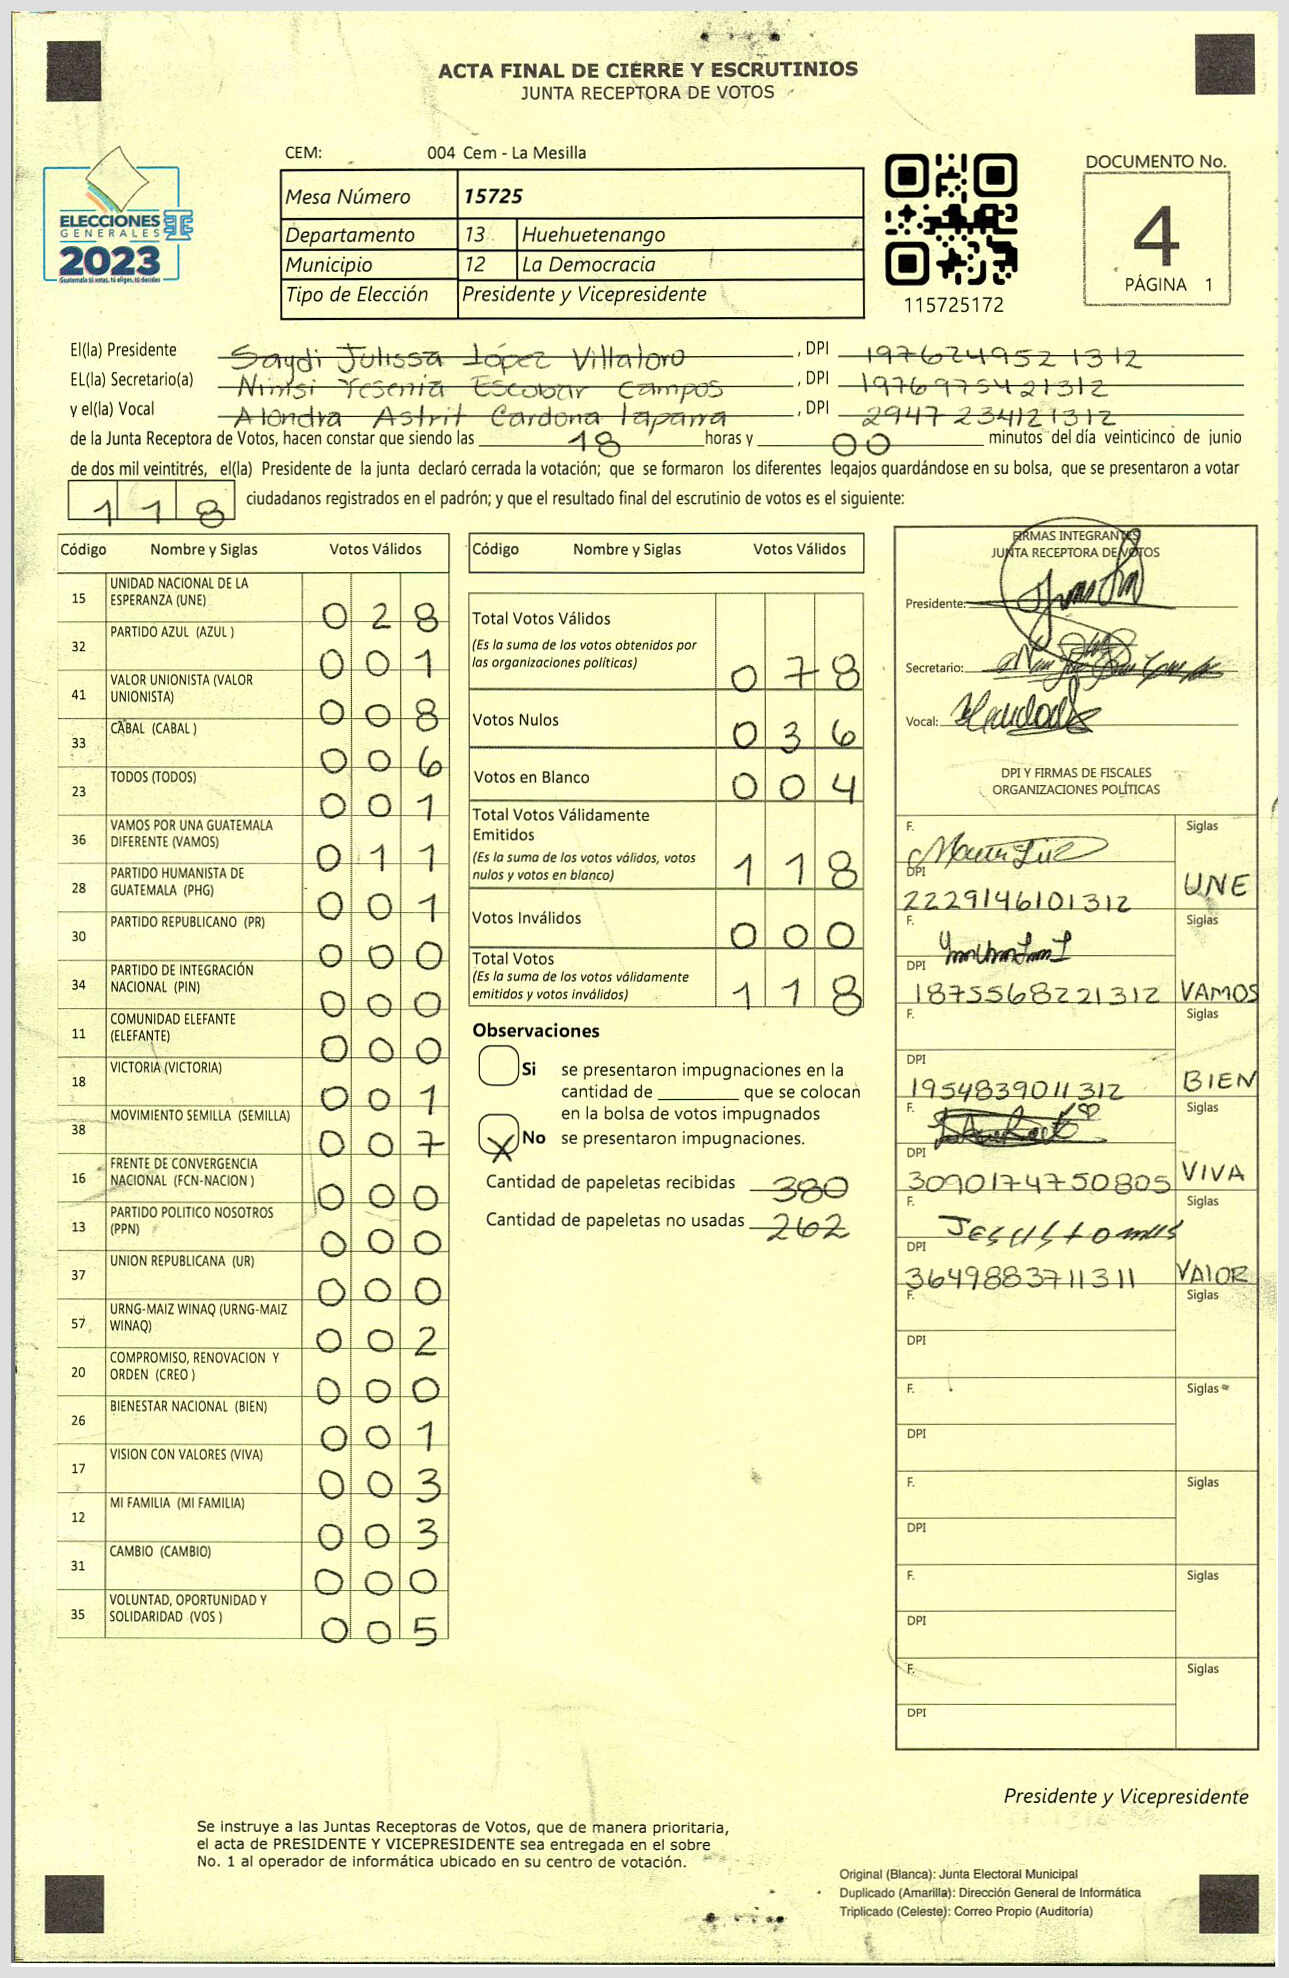 ACTA FINAL DE CIERRE Y ESCRUTINIOS
JUNTA RECEPTORA DE VOTOS
CEM: 004 Cem - La Mesilla
ELECCIONES
GENERALES
2023
Guatemala tú votas, tú eliges, tú decides
Mesa Número 15725
Departamento 13 Huehuetenango
Municipio 12 La Democracia
Tipo de Elección Presidente y Vicepresidente
115725172
DOCUMENTO No.
4
PÁGINA 1
El(la) Presidente Saydi Julissa López Villatoro , DPI 1976249521312
EL(la) Secretario(a) Nimsi Yesenia Escobar Campos , DPI 1976975421312
y el(la) Vocal Alondra Astrit Cardona Taparra , DPI 2947234121312
de la Junta Receptora de Votos, hacen constar que siendo las 18 horas y 00 minutos del día veinticinco de junio
de dos mil veintitrés, el(la) Presidente de la junta declaró cerrada la votación; que se formaron los diferentes legajos guardándose en su bolsa, que se presentaron a votar
118 ciudadanos registrados en el padrón; y que el resultado final del escrutinio de votos es el siguiente:
Código Nombre y Siglas Votos Válidos
15 UNIDAD NACIONAL DE LA
ESPERANZA (UNE) 028
32 PARTIDO AZUL (AZUL ) 001
41 VALOR UNIONISTA (VALOR
UNIONISTA) 008
33 CABAL (CABAL ) 006
23 TODOS (TODOS) 001
36 VAMOS POR UNA GUATEMALA
DIFERENTE (VAMOS) 011
28 PARTIDO HUMANISTA DE
GUATEMALA (PHG) 001
30 PARTIDO REPUBLICANO (PR) 000
34 PARTIDO DE INTEGRACIÓN
NACIONAL (PIN) 000
11 COMUNIDAD ELEFANTE
(ELEFANTE) 000
18 VICTORIA (VICTORIA) 001
38 MOVIMIENTO SEMILLA (SEMILLA) 007
16 FRENTE DE CONVERGENCIA
NACIONAL (FCN-NACION ) 000
13 PARTIDO POLITICO NOSOTROS
(PPN) 000
37 UNION REPUBLICANA (UR) 000
57 URNG-MAIZ WINAQ (URNG-MAIZ
WINAQ) 002
20 COMPROMISO, RENOVACION Y
ORDEN (CREO ) 000
26 BIENESTAR NACIONAL (BIEN) 001
17 VISION CON VALORES (VIVA) 003
12 MI FAMILIA (MI FAMILIA) 003
31 CAMBIO (CAMBIO) 000
35 VOLUNTAD, OPORTUNIDAD Y
SOLIDARIDAD (VOS ) 005
Código Nombre y Siglas Votos Válidos
Total Votos Válidos
(Es la suma de los votos obtenidos por
las organizaciones políticas) 078
Votos Nulos 036
Votos en Blanco 004
Total Votos Válidamente
Emitidos
(Es la suma de los votos válidos, votos
nulos y votos en blanco) 118
Votos Inválidos 000
Total Votos
(Es la suma de los votos válidamente
emitidos y votos inválidos) 118
Observaciones
Si se presentaron impugnaciones en la
cantidad de ________ que se colocan
en la bolsa de votos impugnados
X No se presentaron impugnaciones.
Cantidad de papeletas recibidas 380
Cantidad de papeletas no usadas 262
FIRMAS INTEGRANTES
JUNTA RECEPTORA DE VOTOS
Presidente:
Secretario:
Vocal:
DPI Y FIRMAS DE FISCALES
ORGANIZACIONES POLÍTICAS
F. Siglas
DPI 2229146101312 UNE
F. Siglas
DPI 1875568221312 VAMOS
F. Siglas
DPI 1954839011312 BIEN
F. Siglas
DPI 3090174750805 VIVA
F. Siglas
DPI 3649883711311 VALOR
F. Siglas
DPI
F. Siglas
DPI
F. Siglas
DPI
F. Siglas
DPI
F. Siglas
DPI
Presidente y Vicepresidente
Se instruye a las Juntas Receptoras de Votos, que de manera prioritaria,
el acta de PRESIDENTE Y VICEPRESIDENTE sea entregada en el sobre
No. 1 al operador de informática ubicado en su centro de votación.
Original (Blanca): Junta Electoral Municipal
Duplicado (Amarilla): Dirección General de Informática
Triplicado (Celeste): Correo Propio (Auditoría)